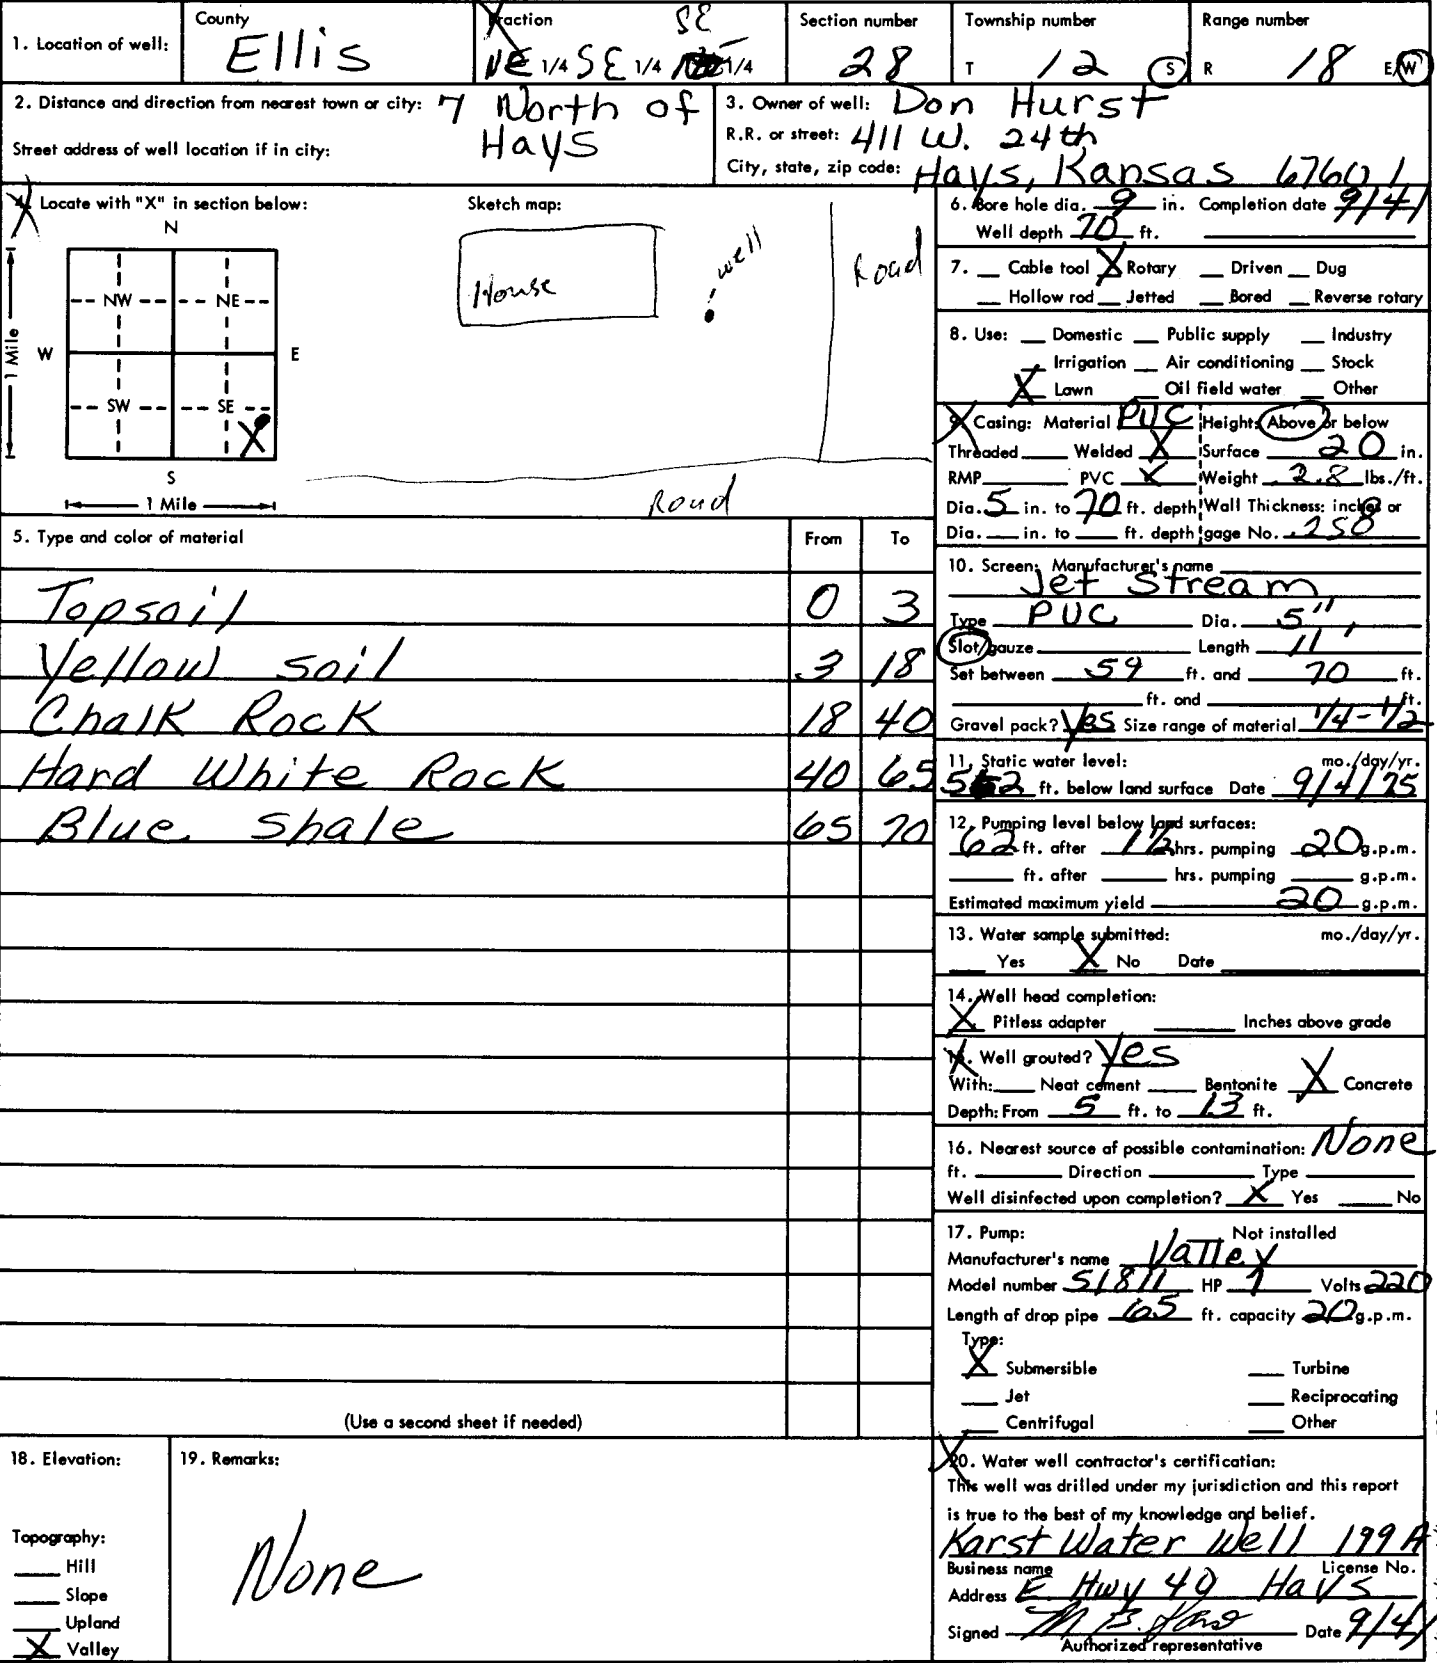 1. Location of well: County Ellis Fraction SE NE 1/4 SE 1/4 1/4 Section number 28 Township number T 12 S Range number R 18 E/W
2. Distance and direction from nearest town or city: 7 North of Hays
Street address of well location if in city:
3. Owner of well: Don Hurst
R.R. or street: 411 W. 24th
City, state, zip code: Hays, Kansas 67601
4. Locate with "X" in section below:
N
NW NE
W E
SW SE
X
S
1 Mile
1 Mile
Sketch map:
House
well
Road
Road
5. Type and color of material From To
Topsoil 0 3
Yellow soil 3 18
Chalk Rock 18 40
Hard White Rock 40 65
Blue Shale 65 70
(Use a second sheet if needed)
6. Bore hole dia. 9 in. Completion date 9/4/
Well depth 70 ft.
7. Cable tool X Rotary Driven Dug
Hollow rod Jetted Bored Reverse rotary
8. Use: Domestic Public supply Industry
Irrigation Air conditioning Stock
X Lawn Oil field water Other
9. Casing: Material PVC Height: Above or below
Threaded Welded X Surface 20 in.
RMP PVC X Weight 2.8 lbs./ft.
Dia. 5 in. to 70 ft. depth Wall Thickness: inches or
Dia. in. to ft. depth gage No. .258
10. Screen: Manufacturer's name
Jet Stream
Type PVC Dia. 5"
Slot/gauze Length 11'
Set between 59 ft. and 70 ft.
ft. and ft.
Gravel pack? Yes Size range of material 1/4-1/2
11. Static water level: mo./day/yr.
52 ft. below land surface Date 9/4/75
12. Pumping level below land surfaces:
62 ft. after 1 1/2 hrs. pumping 20 g.p.m.
ft. after hrs. pumping g.p.m.
Estimated maximum yield 20 g.p.m.
13. Water sample submitted: mo./day/yr.
Yes X No Date
14. Well head completion:
X Pitless adapter Inches above grade
15. Well grouted? Yes
With: Neat cement Bentonite X Concrete
Depth: From 5 ft. to 13 ft.
16. Nearest source of possible contamination: None
ft. Direction Type
Well disinfected upon completion? X Yes No
17. Pump: Not installed
Manufacturer's name Valley
Model number S1811 HP 1 Volts 220
Length of drop pipe 65 ft. capacity 20 g.p.m.
Type:
X Submersible Turbine
Jet Reciprocating
Centrifugal Other
18. Elevation:
Topography:
Hill
Slope
Upland
X Valley
19. Remarks:
None
20. Water well contractor's certification:
This well was drilled under my jurisdiction and this report
is true to the best of my knowledge and belief.
Karst Water Well 199A
Business name License No.
Address E. Hwy 40 Hays
Signed Date 9/4/
Authorized representative